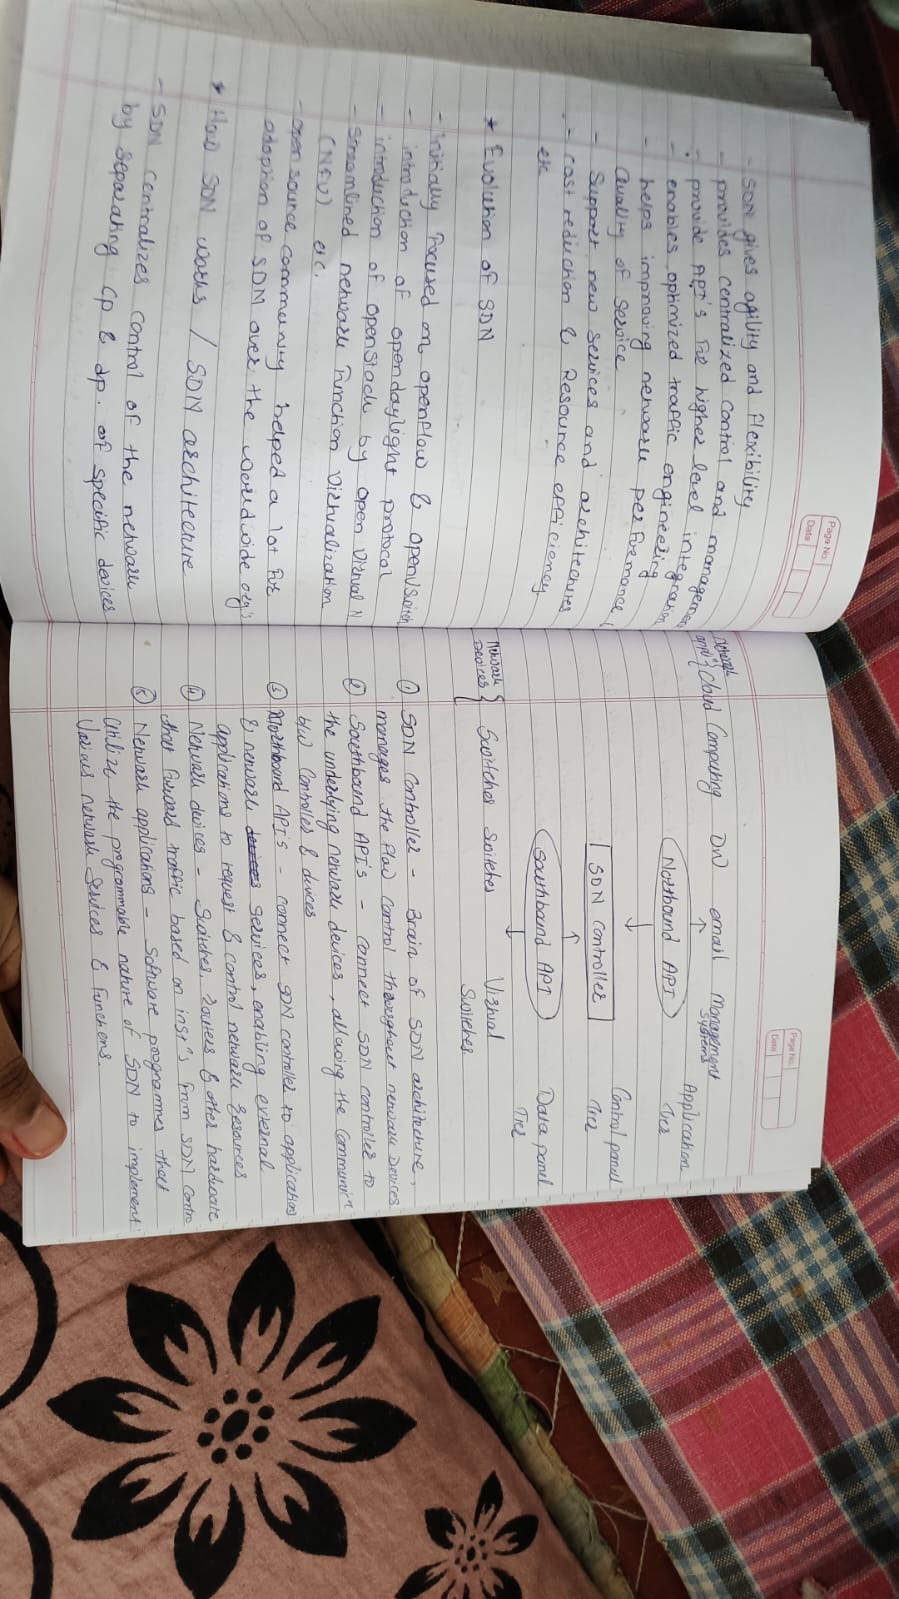 Page No.
Date
- SDN gives agility and flexibility
- provides centralized control and management
- provide API's for higher level integration
- enables optimized traffic engineering
- helps improving network performance &
Quality of Service
- Support new services and architectures
- cost reduction & Resource efficiency
etc
* Evolution of SDN
- initially focused on openflow & openvswitch
- introduction of opendaylight protocol
- introduction of openstack by open Virtual N
- Streamlined network Function Virtualization
(NFV) etc.
- open source community helped a lot for
adoption of SDN over the worldwide org's
* How SDN works / SDN architecture
- SDN centralizes control of the network
by separating cp & dp. of specific devices
Page No.
Date
Network
appli" { Cloud Computing DW email Management
Systems
Application
Tier
Northbound API
Control panel
Tier
SDN Controller
Southbound API
Data panel
Tier
Network
Devices { Switches Switches Virtual
Switches
① SDN Controller - Brain of SDN architecture,
manages the flow control throughout network Devices
② Southbound API's - connect SDN controller to
the underlying network devices, allowing the communicn
b/w Controller & devices
③ Northbound API's - connect SDN controller to applications
& network devices services, enabling external
applications to request & control network resources
④ Network devices - Switches, routers & other hardware
that forward traffic based on inst"s from SDN Contro
⑤ Network applications - Software programmes that
utilize the programmable nature of SDN to implement
various network services & functions.